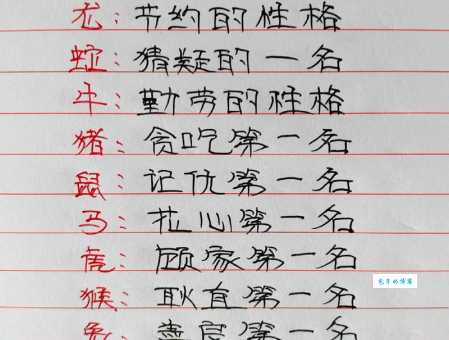 龙：节约的性格
蛇：猜疑的一名
牛：勤劳的性格
猪：贪吃第一名
鼠：记仇第一名
马：拉心第一名
虎：顾家第一名
猴：耿直第一名
兔：善良第一名